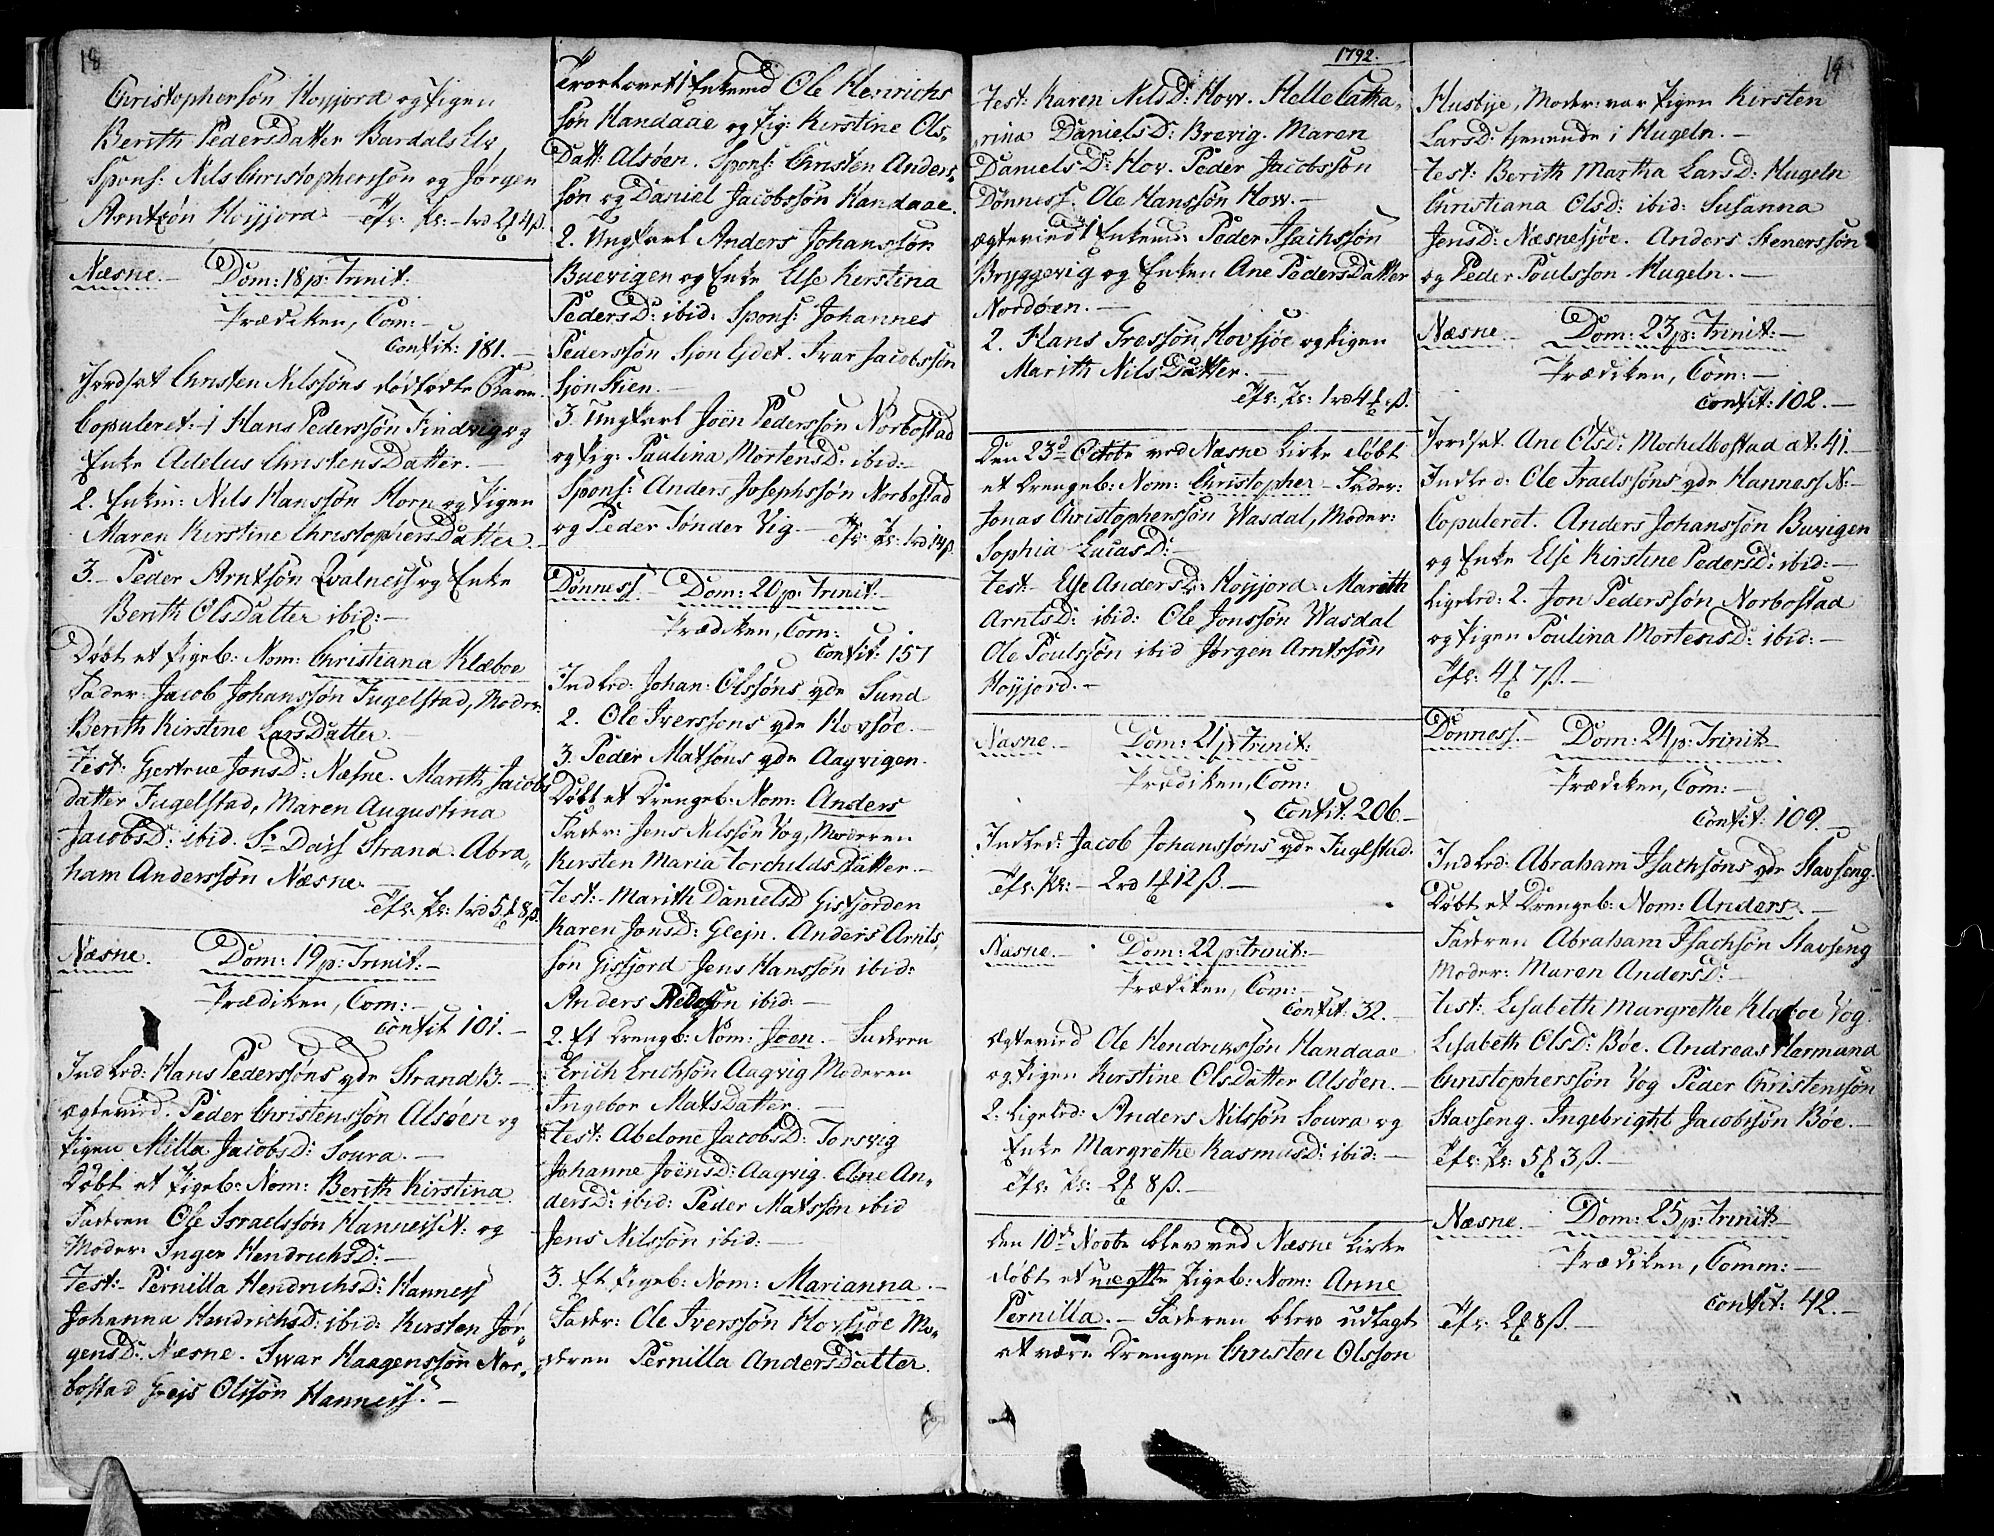 18
Christophersøn Høyjord og Pigen
Berith PedersDatter Bardals Elv,
Spons: Nils Christophersøn og Jørgen
Arntsøn Høyjord
Næsne. Dom: 18 p: Trinit:
Prædiken, Com:
Confit: 181.
Jordsat Christen Nilssøns dødfødte Barn.
Copuleret: 1 Hans Pederssøn Findvig og
Enke Adelus ChristensDatter.
2. Enkem: Nils Hanssøn Horn og Pigen
Maren Kirstine ChristophersDatter.
3. Peder Arntsøn Qvalness og Enke
Berith OlsDatter ibid:
Døbt et Pigeb: Nom: Christiana Klæboe
Fader: Jacob Johanssøn Fugelstad, Moder
Berith Kirstine LarsDatter.
Test: Gjertrue JonsD: Næsne. Marith Jacobs
datter Fugelstad, Maren Augustina
JacobsD: ibid. Sr Dass Strand. Abra-
ham Anderssøn Næsne.
Næsne. Dom: 19 p: Trinit:
Prædiken, Com:
Confit 101.
Indled: Hans Pederssøns qde Strand B.
Ægtevied. Peder Christenssøn Alsøen og
Pigen Milla JacobsD: Soura.
Døbt et Pigeb: Nom: Berith Kirstina
Faderen Ole Israelssøn Hanness N: og
Moder: Inger HendrichsD:
Test: Pernilla HendrichsD: Hanness
Johanna HendrichsD: ibid: Kirsten Jør-
gensD: Næsne. Ivar Haagenssøn Nor-
bostad Gejs Olssøn Hanness.
Trolovet 1 Enkemd Ole Henrichs
søn Handaae og Pig: Kirstine Ols-
Datt: Alsøen. Spons: Christen Anders-
søn og Daniel Jacobssøn Handaae.
2. Ungkarl Anders Johanssøn
Buevigen og Enke Else Kirstina
PedersD: ibid: Spons: Johannes
Pederssøn Sjon Eydet. Ivar Jacobssøn
Sjon Skien.
3. Ungkarl Joen Pederssøn Norbostad
og Pig: Paulina MortensD: ibid:
Spons: Anders Josephssøn Norbostad
og Peder Tønder Vig.
Dønness. Dom: 20 p: Trinit:
Prædiken, Com:
Confit: 157
Indled: Johan: Olssøns qde Sund
2. Ole Iverssøns qde Hovsøe.
3. Peder Matsøns qde Aagvigen.
Døbt et Drengeb: Nom: Anders
Fader: Jens Nilssøn Vog, Moderen
Kirsten Maria TorchildsDatter.
Test: Marith DanielsD Gisfjorden
Karen JonsD: Glejn. Anders Arnts-
søn Gisfjord Jens Hanssøn ibid:
Anders Pedersøn ibid:
2. Et Drengb: Nom: Joen. Faderen
Erich Erichsøn Aagvig Moderen
Ingebor MatsDatter.
Test: Abelone JacobsD: Torsvig
Johanne JoensD: Aagvig. Ane An-
dersD: ibid: Peder Matssøn ibid
Jens Nilssøn ibid:
3. Et Pigeb: Nom: Marianna.
Fader: Ole Iverssøn Hovsjøe Mo-
deren Pernilla AndersDatter.
1792.
Test: Karen NilsD: Hov. Helle Catha-
rina DanielsD: Brevig. Maren
DanielsD: Hov. Peder Jacobssøn
Dønness. Ole Hanssøn Hov.
Ægtevied 1 Enkemd: Peder Isachssøn
Bryggevig og Enken Ane PedersDatter
Nordøen.
2. Hans Gressøn Hovsjøe og Pigen
Marith NilsDatter.
Den 23de Octobr ved Næsne Kirke døbt
et Drengeb: Nom: Christopher Fader:
Jonas Christopherssøn Wasdal, Moder:
Sophia LucasD:
Test: Else AndersD: Høyjord Marith
ArntsD: ibid: Ole Jonssøn Wasdal
Ole Poulssøn ibid Jørgen Arntssøn
Høyjord.
Næsne. Dom: 21 p: Trinit:
Prædiken, Com:
Confit: 206.
Indled: Jacob Johanssøns qde Fuglstad.
Næsne. Dom: 22 p: Trinit:
Prædiken, Com:
Confit: 32.
Ægtevied Ole Hendrikssøn Handaae
og Pigen Kirstine OlsDatter Alsøen.
2. Ligeled: Anders Nilssøn Soura og
Enke Margrethe RasmusD: ibid:
den 10de Novbr blev ved Næsne Kirke
døbt et uægte Pigeb: Nom: Anne
Pernilla. Faderen blev udlagt
at være Drengen Christen Olsson
Husbye, Moder: var Pigen Kirsten
LarsD: tjenende i Hugeln.
Test: Berith Martha LarsD: Hugeln
Christiana OlsD: ibid: Susanna
JensD: Næsnesjøe. Anders Stenerssøn
og Peder Poulsson Hugeln.
Næsne Dom: 23 p: Trinit:
Prædiken, Com:
Confit: 102.
Jordsat Ane OlsD: Mochelbostad æt: 41.
Indled: Ole Iraelssøns qde Hanness N:
Copuleret. Anders Johanssøn Buvigen
og Enke Else Kirstine PedersD: ibid:
Ligeled: 2. Jon Pederssøn Norbostad
og Pigen Poulina MortensD: ibid:
Dønness. Dom: 24 p: Trinit:
Prædiken, Com:
Confit: 109.
Indled: Abraham Isachsøns qde Stavseng.
Døbt et Drengeb: Nom: Anders.
Faderen Abraham Isachsøn Stavseng
Moder: Maren AndersD:
Test: Lisabeth Margrethe Klæboe Vog.
Lisabeth OlsD: Bøe. Andreas Hormand
Christopherssøn Vog Peder Christenssøn
Stavseng. Ingebright Jacobssøn Bøe.
Næsne. Dom: 25 p: Trinit:
Prædiken, Comm:
Confit: 42.